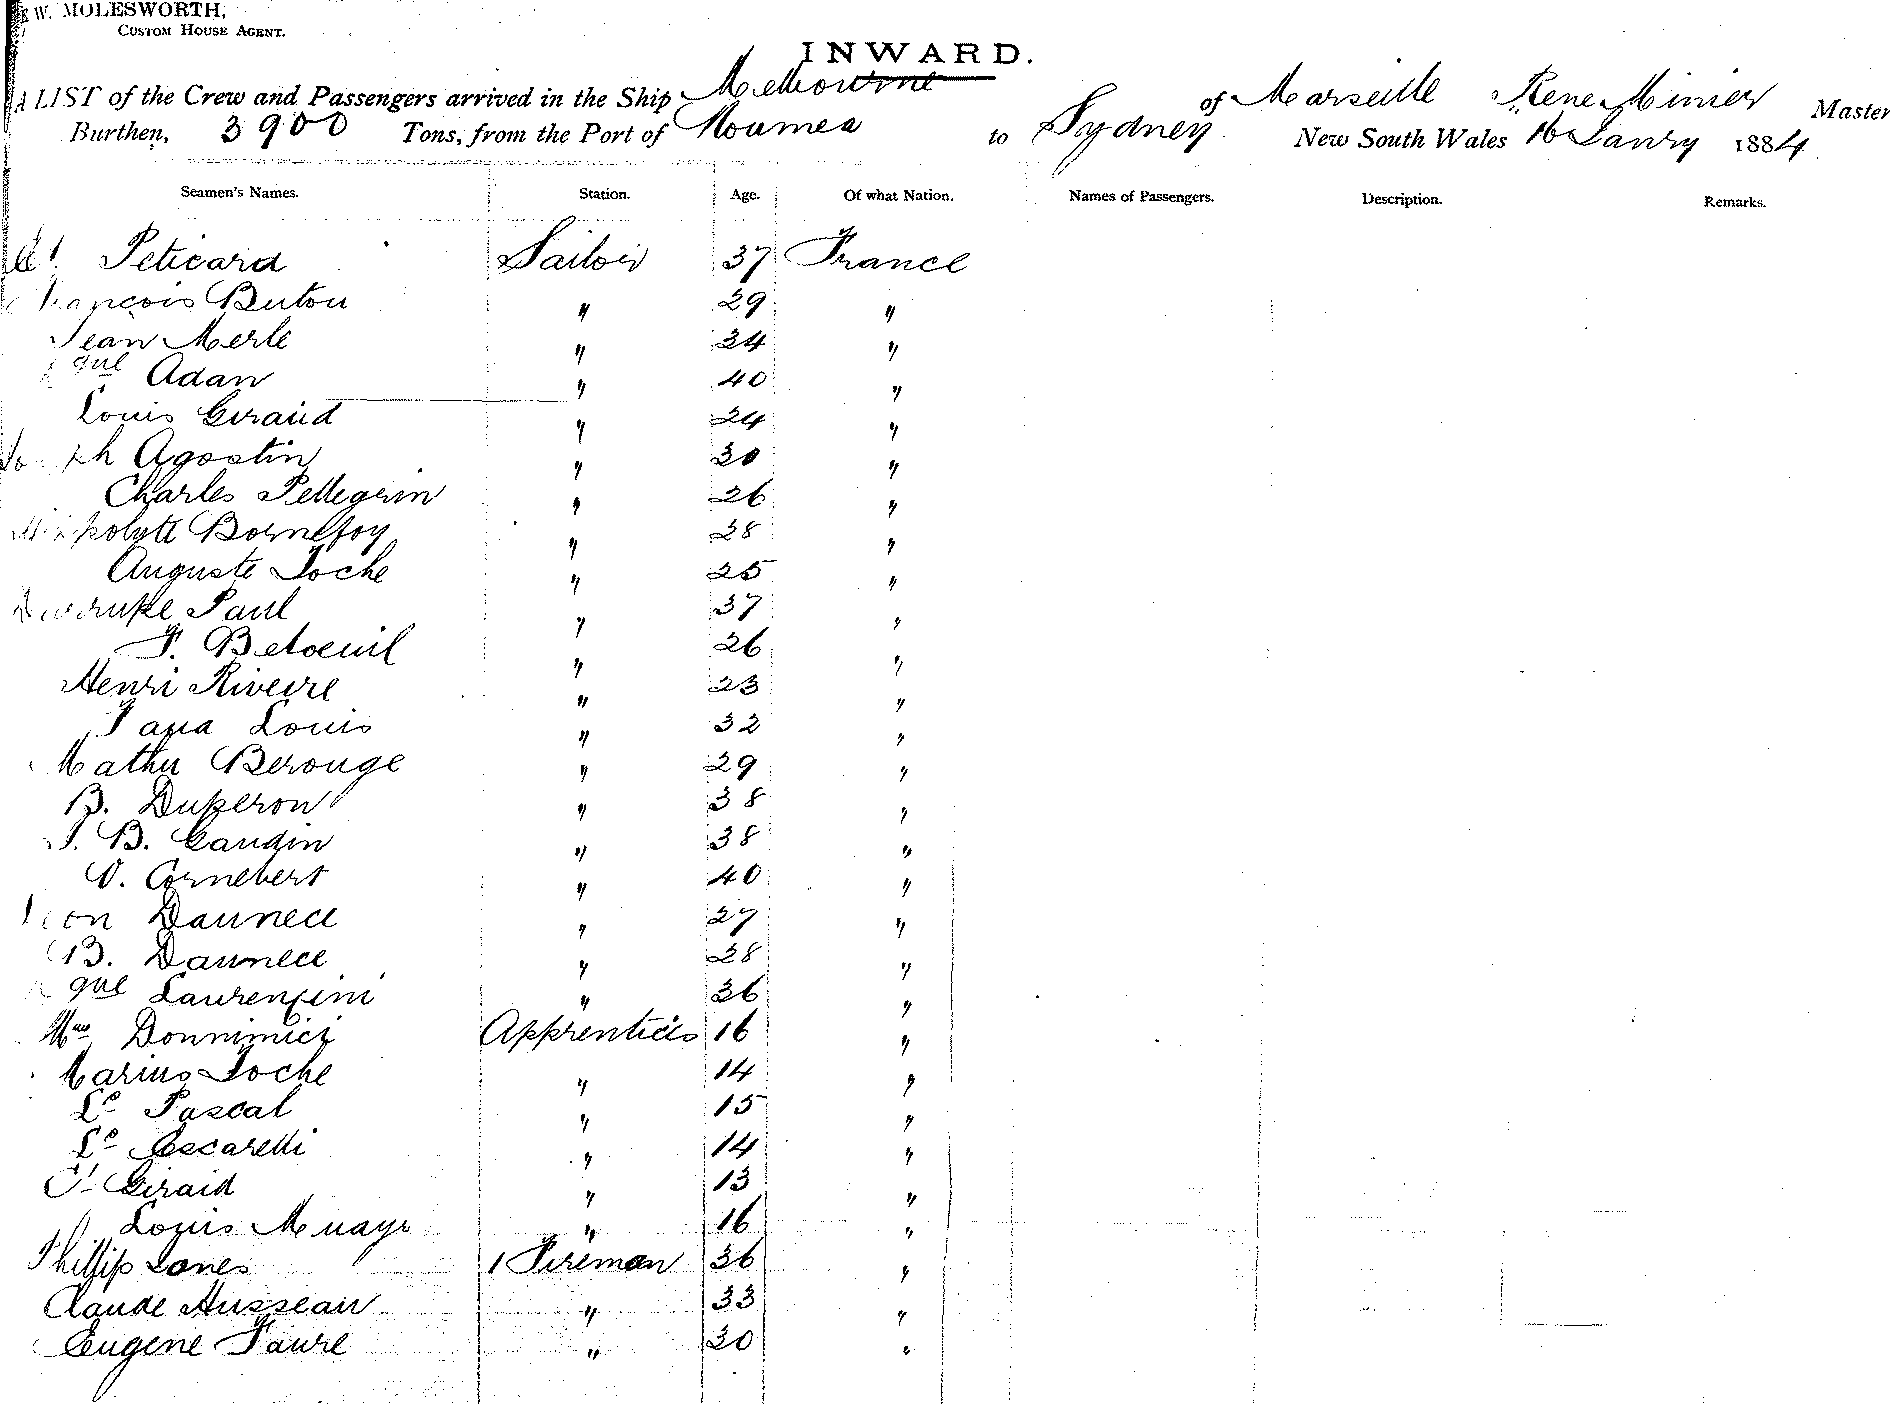 W. MOLESWORTH,
CUSTOM HOUSE AGENT.
INWARD.
A LIST of the Crew and Passengers arrived in the Ship Melbourne of Marseille Rene Minier Master
Burthen, 3900 Tons, from the Port of Noumea to Sydney New South Wales 16 Janry 1884
Seamen's Names. Station. Age. Of what Nation. Names of Passengers. Description. Remarks.
Peticard Sailor 37 France
François Butou " 29 "
Jean Merle " 34 "
Adan " 40 "
Louis Giraud " 24 "
Agostin " 30 "
Charles Pellegrin " 26 "
Bornefoy " 38 "
Auguste Toche " 25 "
Paul " 37 "
F. Betoeuil " 26 "
Henri Riveire " 23 "
Louis " 32 "
Mathu Berouge " 29 "
B. Duperon " 38 "
J. B. Gaudin " 38 "
V. Cornebert " 40 "
Daunece " 27 "
B. Daunece " 28 "
Laurenzini " 36 "
Donnimici Apprentices 16 "
Marius Toche " 14 "
Ls Pascal " 15 "
Ls Cescaretti " 14 "
Giraid " 13 "
Louis " 16 "
Phillip Lanes 1 Fireman 36 "
Claude Husseau " 33 "
Eugene Faure " 30 "